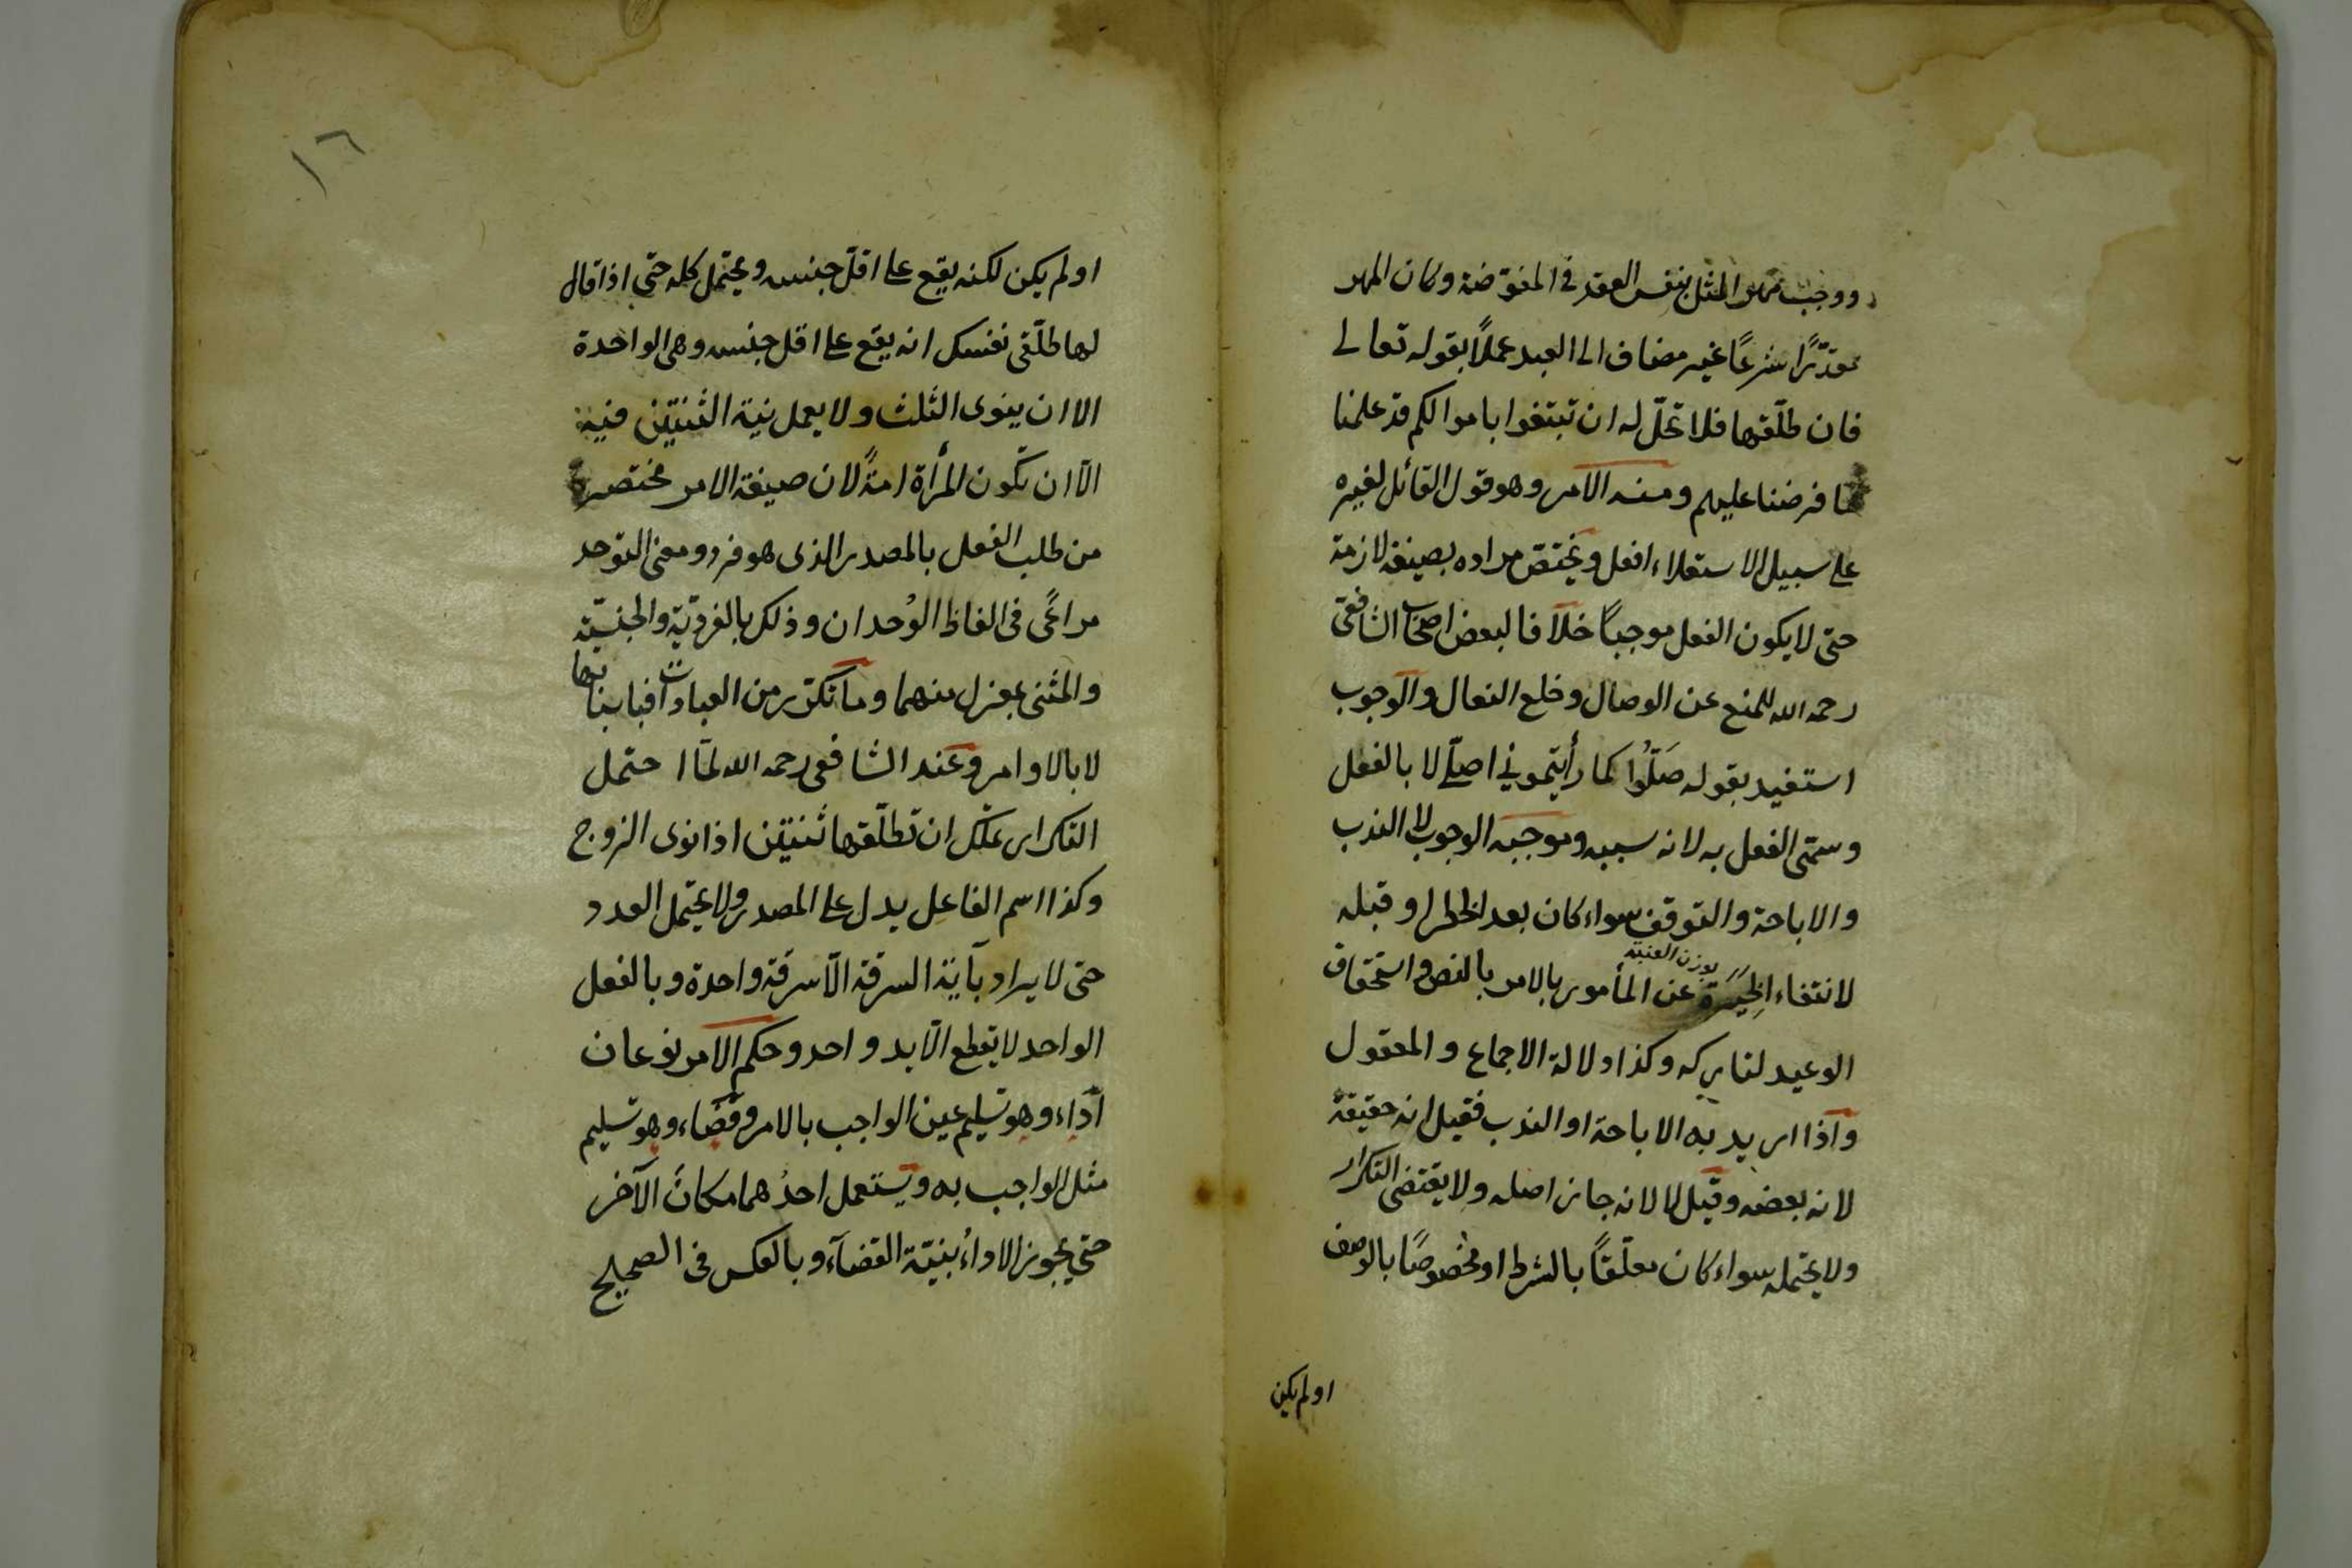 ووجب مهر المثل بنفس العقد في المفوّضة وكان المهر
مقدّرًا شرعًا غير مضاف الى العبد عملًا بقوله تعالى
فان طلّقها فلا تحلّ له ان تبتغوا باموالكم قد علمنا
ما فرضنا عليهم ومنه الامر وهو قول القائل لغيره
على سبيل الاستعلاء افعل ويختصّ مراده بصيغة لازمة
حتى لا يكون الفعل موجبًا خلافا لبعض اصحاب الشافعى
رحمه الله للمنع عن الوصال وخلع النعال والوجوب
استفيد بقوله صَلّوُا كما رأيتمونى اصلّى لا بالفعل
وسمّى الفعل به لانه سببه وموجبه الوجوب لا الندب
والاباحة والتوقف سواء كان بعد الحظر او قبله
بوزن العنبة
لانتفاء الخِيَرَة عن المأمور بالامر بالنص واستحقاق
الوعيد لتاركه وكذا دلالة الاجماع والمعقول
واذا اريد به الاباحة او الندب فقيل انه حقيقة
لانه بعضه وقيل لا لانه جاز اصله ولا يقتضى التكرار
ولا يحتمله سواء كان معلّقًا بالشرط او مخصوصًا بالوصف
او لم يكن
١٦
او لم يكن لكنه يقع على اقلّ جنسه ويحتمل كله حتى اذا قال
لها طلّقى نفسك انه يقع على اقل جنسه وهى الواحدة
الا ان ينوى الثلث ولا يعمل نية الثنتين فيه
الّا ان تكون المرأة امةً لان صيغة الامر مختصرة
من طلب الفعل بالمصدر الذى هو فرد ومعنى التوحد
مراعًى فى الفاظ الوُحدان وذلك بالفرديّة والجنسيّة
والمثنى بمعزل منهما وما تكرّر من العبادات فباسبابها
لا بالاوامر وعند الشافعى رحمه الله لمّا احتمل
التكرار تملّك ان تطلّقها ثنتين اذا نوى الزوج
وكذا اسم الفاعل يدل على المصدر ولا يحتمل العدد
حتى لا يراد بآية السرقة الّا سرقة واحدة وبالفعل
الواحد لا يقطع الّا يد واحد وحكم الامر نوعان
اداء وهو تسليم عين الواجب بالامر وقضاء وهو تسليم
مثل الواجب به ويستعمل احدُهما مكانَ الآخر
حتى يجوز الاداءُ بنيّة القضآء وبالعكس فى الصحيح